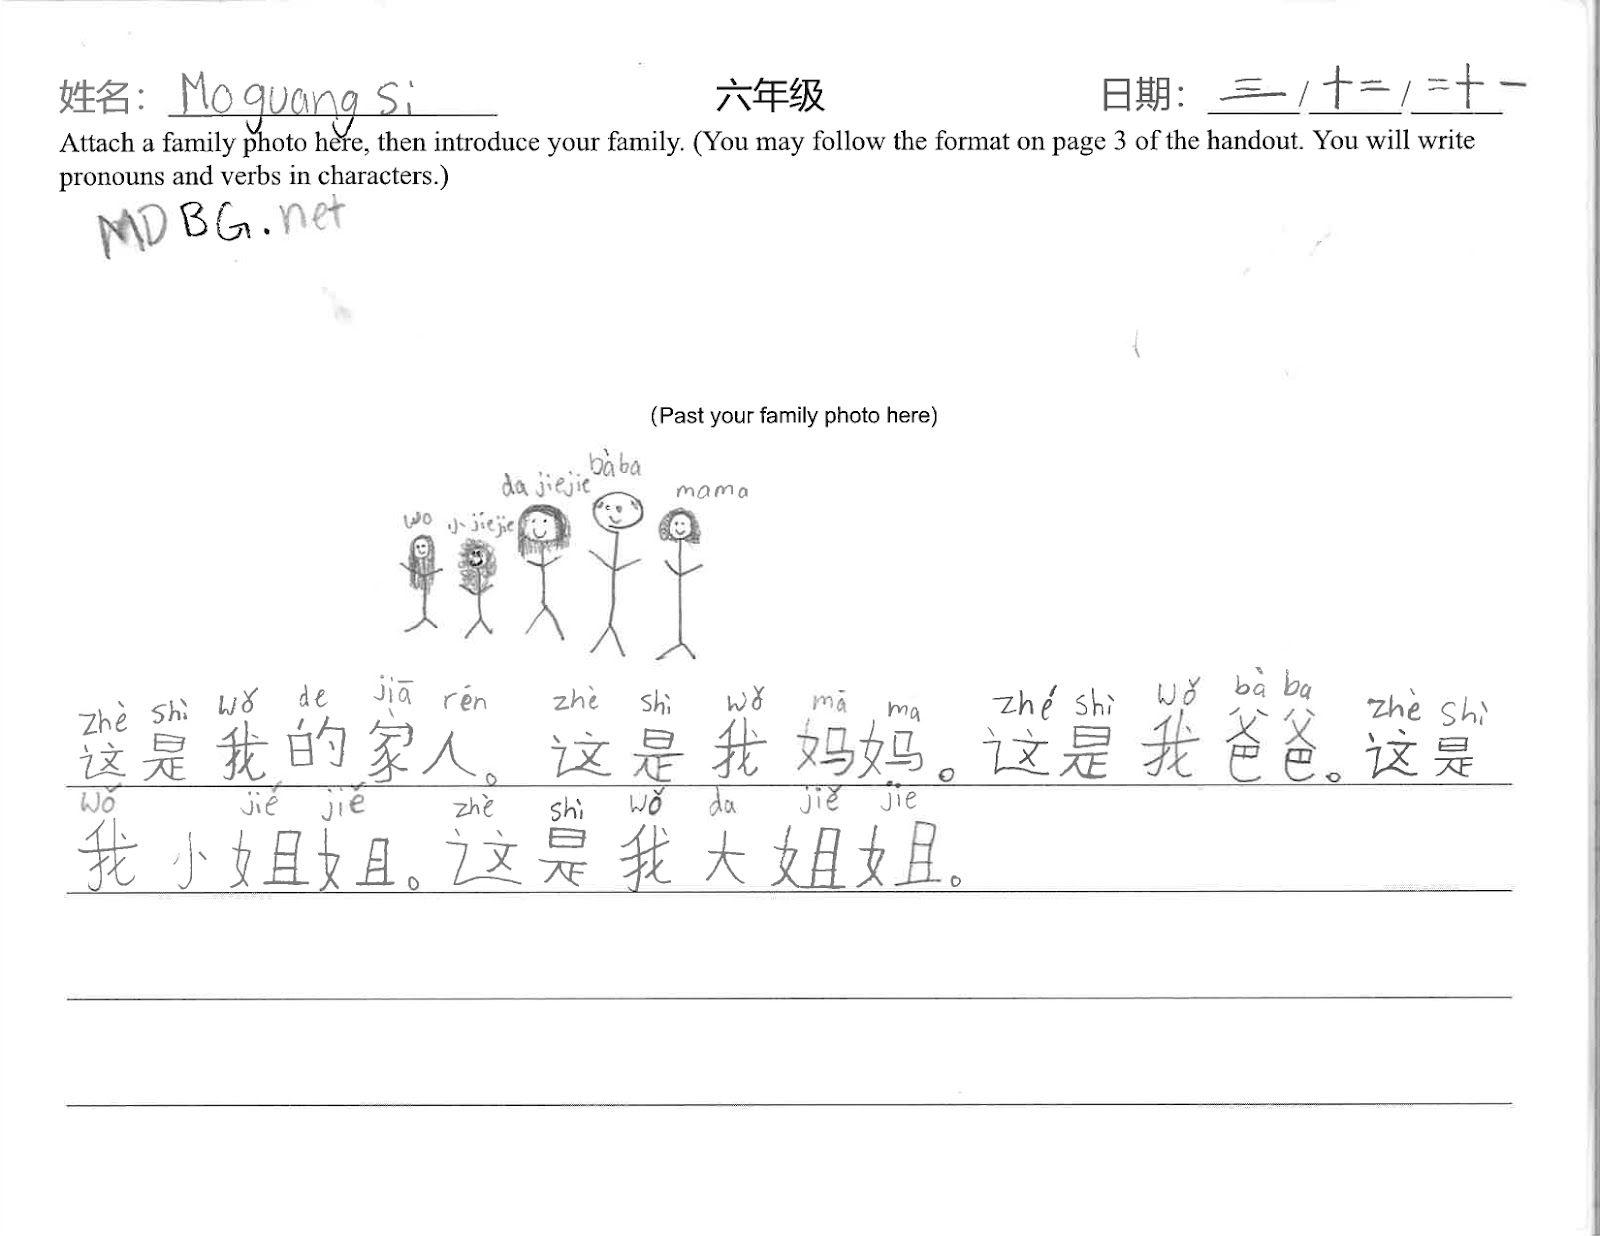 姓名: Mo guang si 六年级 日期: 三 / 十二 / 二十一
Attach a family photo here, then introduce your family. (You may follow the format on page 3 of the handout. You will write
pronouns and verbs in characters.)
MDBG.net
(Past your family photo here)
bàba
da jiejie
mama
wo 小 jiejie
zhè shì wǒ de jiā rén zhè shì wǒ mā ma zhé shì wǒ bà ba zhè shì
这是我的家人。这是我妈妈。这是我爸爸。这是
wǒ jié jiě zhè shì wǒ da jiě jie
我小姐姐。这是我大姐姐。